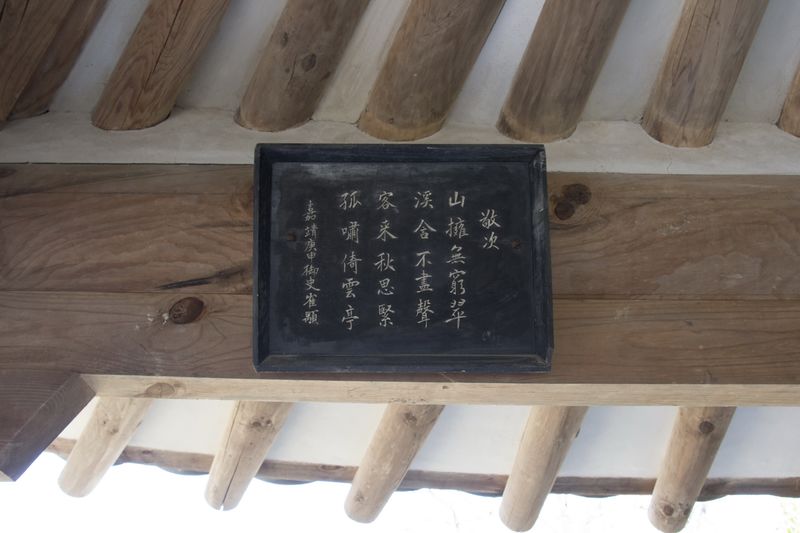 敬次
山擁無窮翠
溪含不盡聲
客来秋思緊
孤嘯倚雲亭
嘉靖庚申御史崔顒